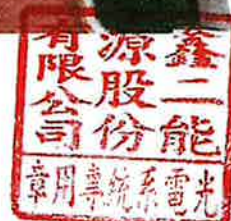 鑫二能
源股份
有限公司
光雷系統專用章